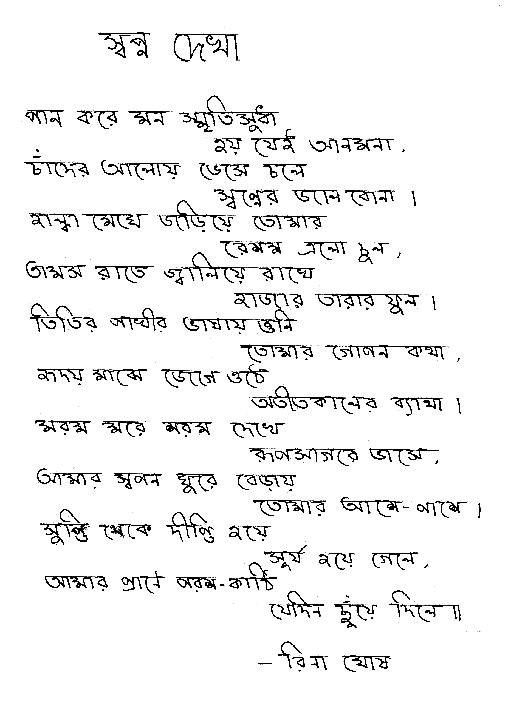 স্বপ্ন দেখা
পান করে মন স্মৃতিসুধা
হয় যেই আনমনা,
চাঁদের আলোয় ভেসে চলে
স্বপ্নের জাল বোনা ।
হাল্কা মেঘে জড়িয়ে তোমার
রেশম এলো চুল,
তামস রাতে জ্বালিয়ে রাখে
হাজার তারার ফুল ।
তিতির পাখীর ভাষায় শুনি
তোমার গোপন কথা,
হৃদয় মাঝে জেগে ওঠে
অতীতকালের ব্যাথা ।
মরম মরে শরম দেখে
রূপসাগরে ভাসে,
আমার স্বপন ঘুরে বেড়ায়
তোমার আশে-পাশে ।
সুপ্তি থেকে দীপ্তি হয়ে
সূর্য হয়ে গেলে,
আমার প্রাণে পরশ-কাঠি
যেদিন ছুঁয়ে দিলে ॥
– রিনা ঘোষ